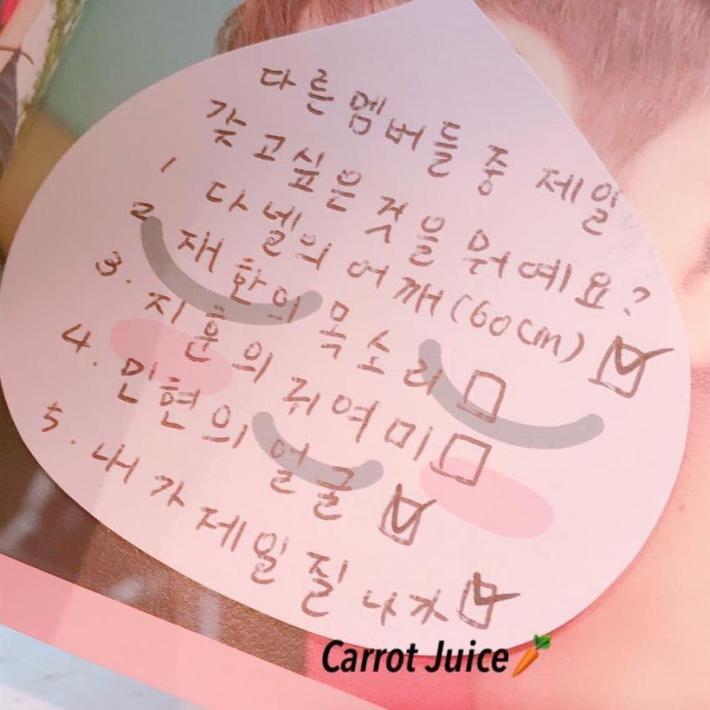 다른 멤버들 중 제일
갖고싶은 것을 뭐예요?
1 다넬의 어깨(60cm) ☑
2 재환의 목소리 □
3. 지훈의 귀여미 □
4. 민현의 얼굴 ☑
5. 내가 제일 잘나가 ☑
Carrot Juice🥕